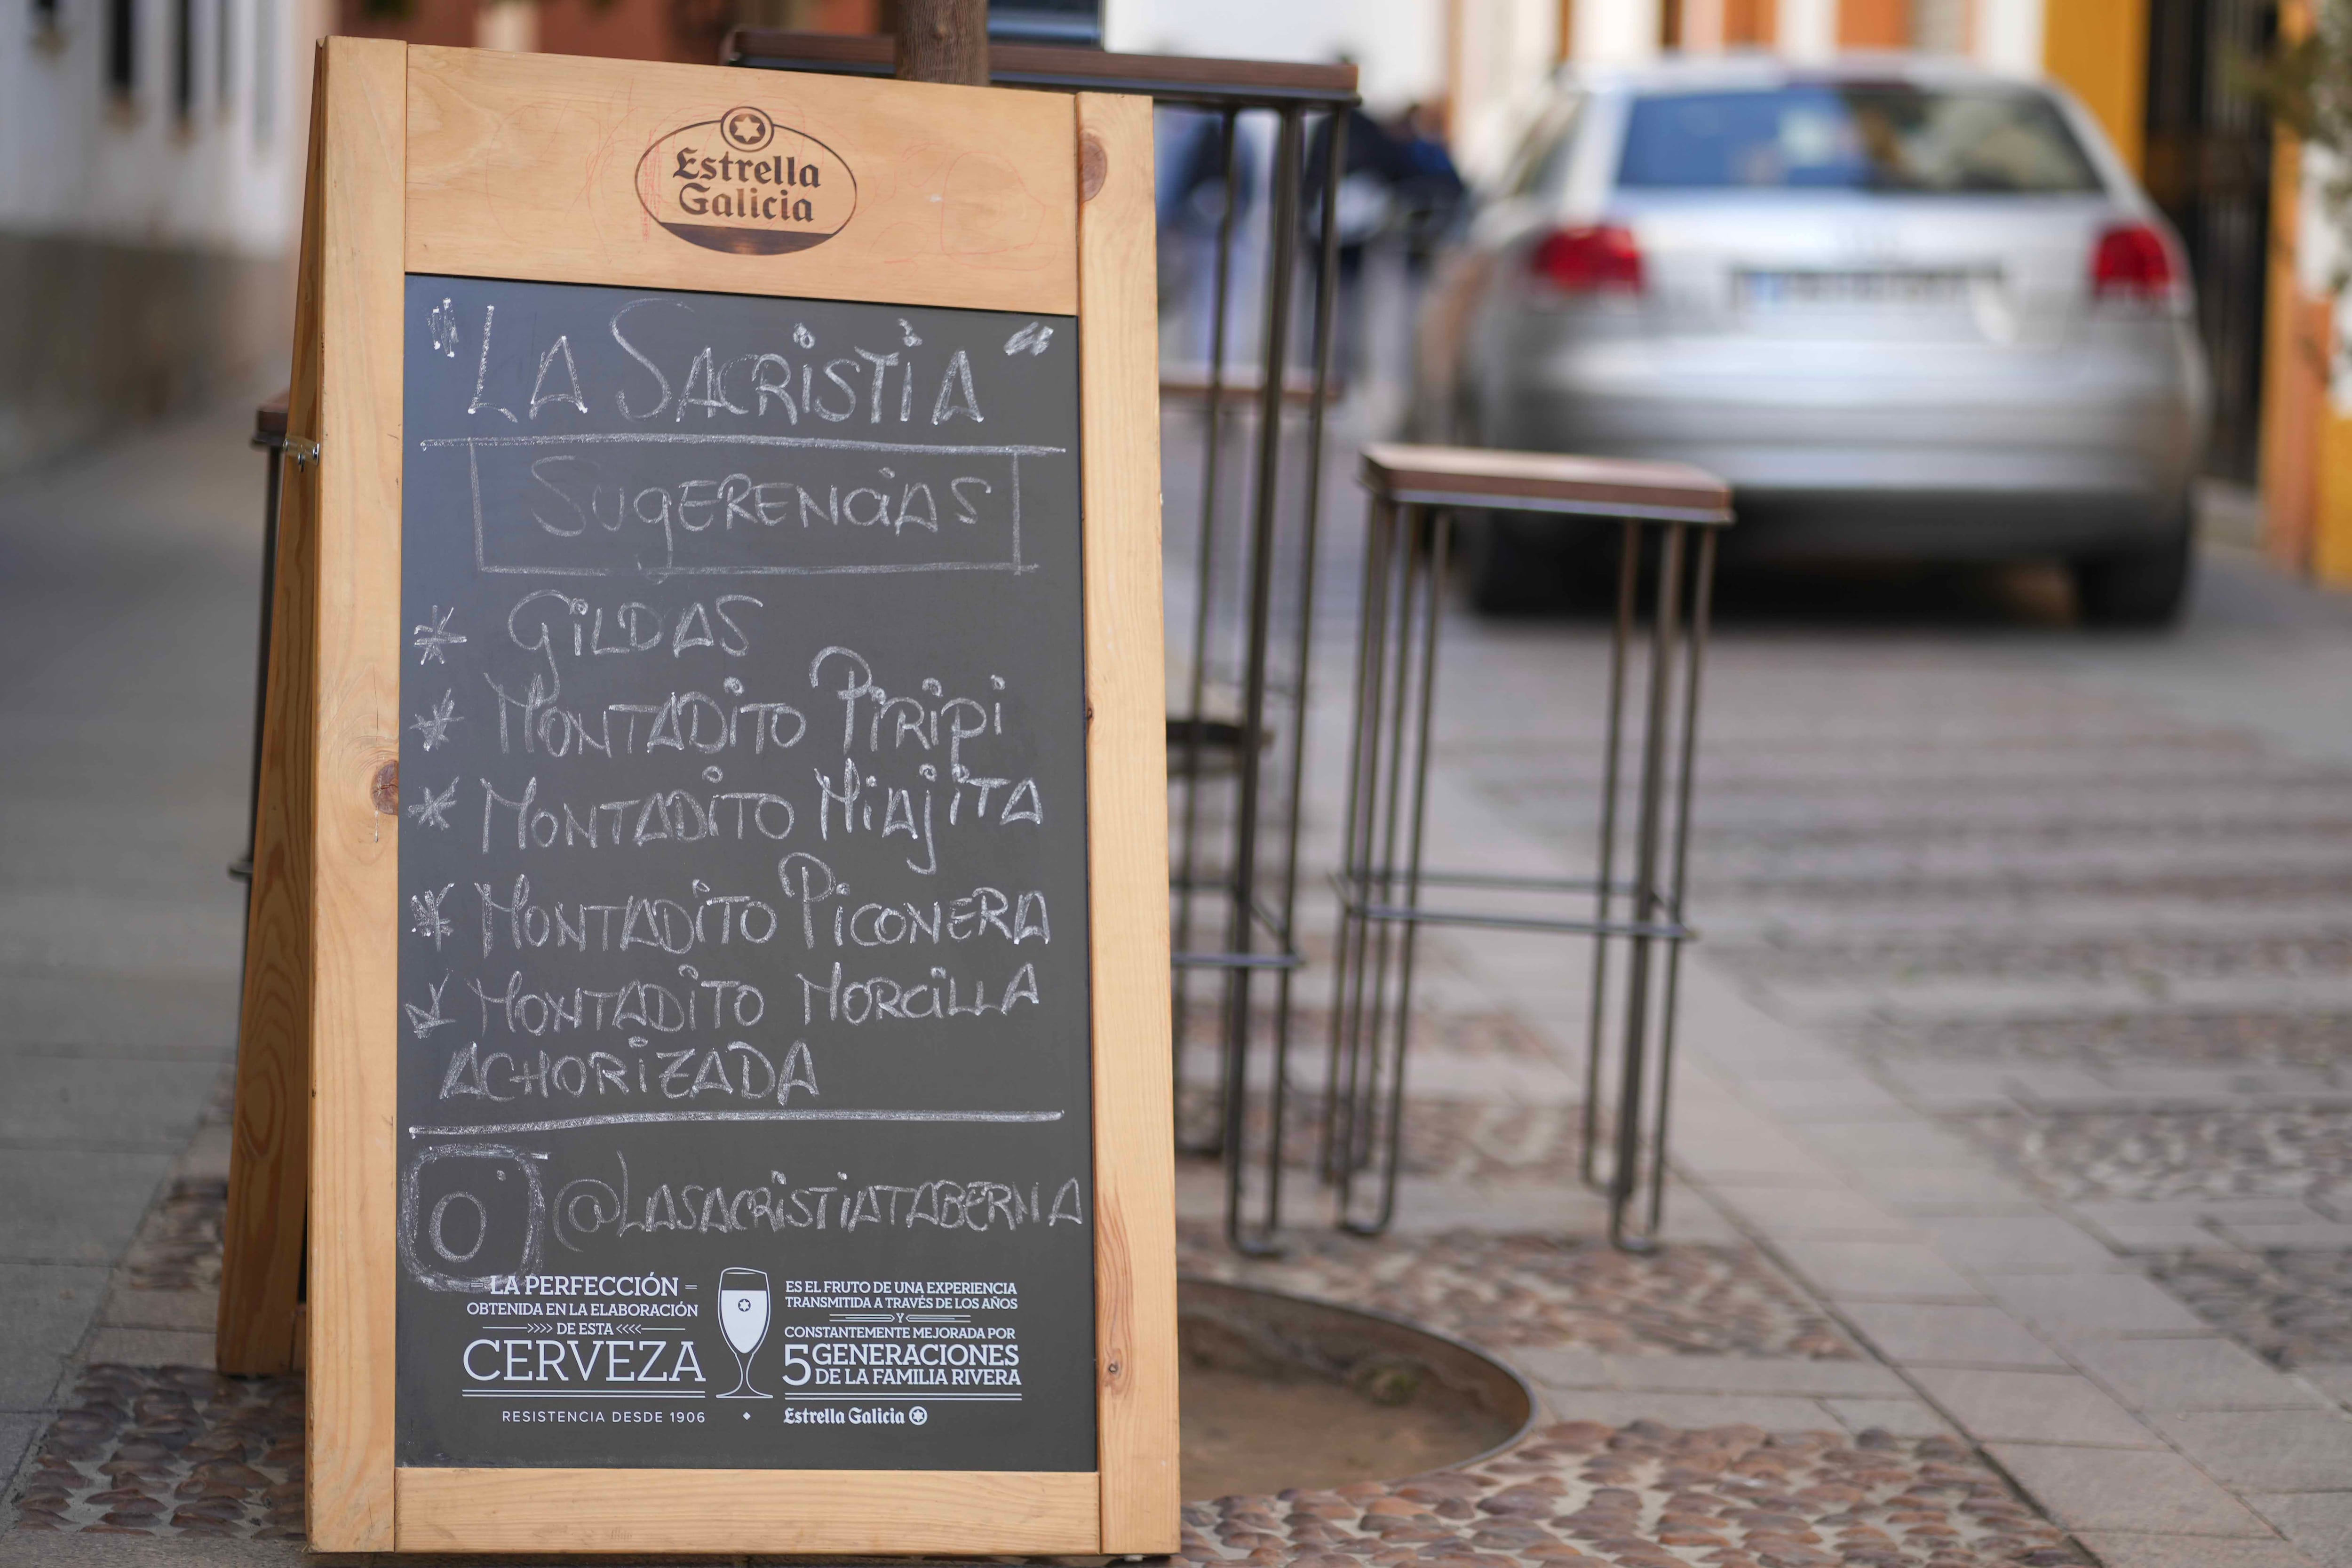 Estrella
Galicia
"LA SACRISTIA"
SUGERENCIAS
* GILDAS
* MONTADITO PIRIPI
* MONTADITO MIAJITA
* MONTADITO PICONERA
* MONTADITO MORCILLA
ACHORIZADA
@LASACRISTIATABERNA
LA PERFECCIÓN
OBTENIDA EN LA ELABORACIÓN
DE ESTA
CERVEZA
RESISTENCIA DESDE 1906
ES EL FRUTO DE UNA EXPERIENCIA
TRANSMITIDA A TRAVÉS DE LOS AÑOS
Y
CONSTANTEMENTE MEJORADA POR
5 GENERACIONES
DE LA FAMILIA RIVERA
Estrella Galicia